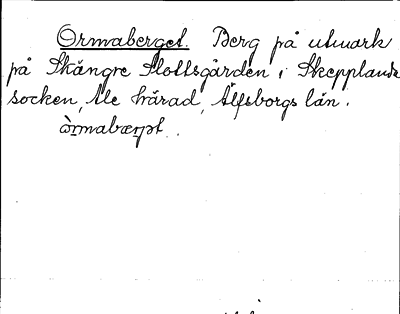 Ormaberget. Berg på utmark
på Skångre Slottsgården i Skepplanda
socken, Ale härad, Älfsborgs län.